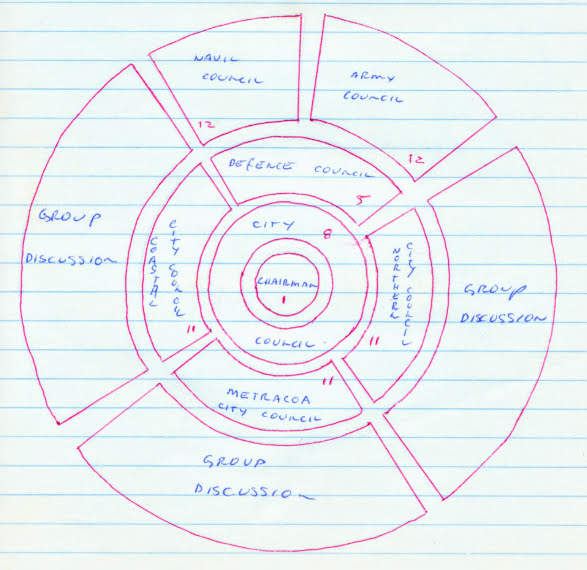 NAVIL
COUNCIL
ARMY
COUNCIL
12
12
DEFENCE COUNCIL
5
GROUP
DISCUSSION
COASTAL
CITY COUNCIL
11
CITY
8
CHAIRMAN
1
COUNCIL
NORTHERN
CITY COUNCIL
11
GROUP
DISCUSSION
11
METRACOA
CITY COUNCIL
GROUP
DISCUSSION